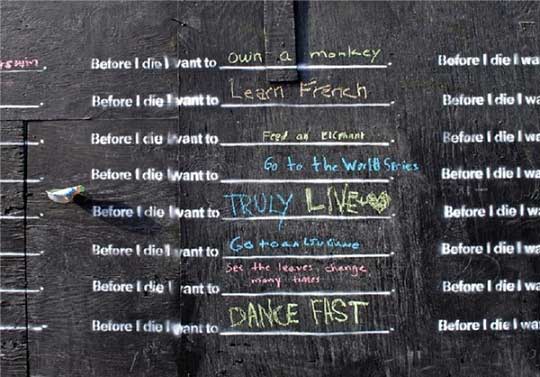 Before I die I want to own a monkey. Before I die I wa
Before I die I want to Learn French. Before I die I wa
Before I die I want to Feed an Elephant. Before I die I wa
Before I die I want to Go to the World Series. Before I die I wa
Before I die I want to TRULY LIVE. Before I die I wa
Before I die I want to Go to a. Before I die I wa
Before I die I want to See the leaves change many times. Before I die I wa
Before I die I want to DANCE FAST. Before I die I wa